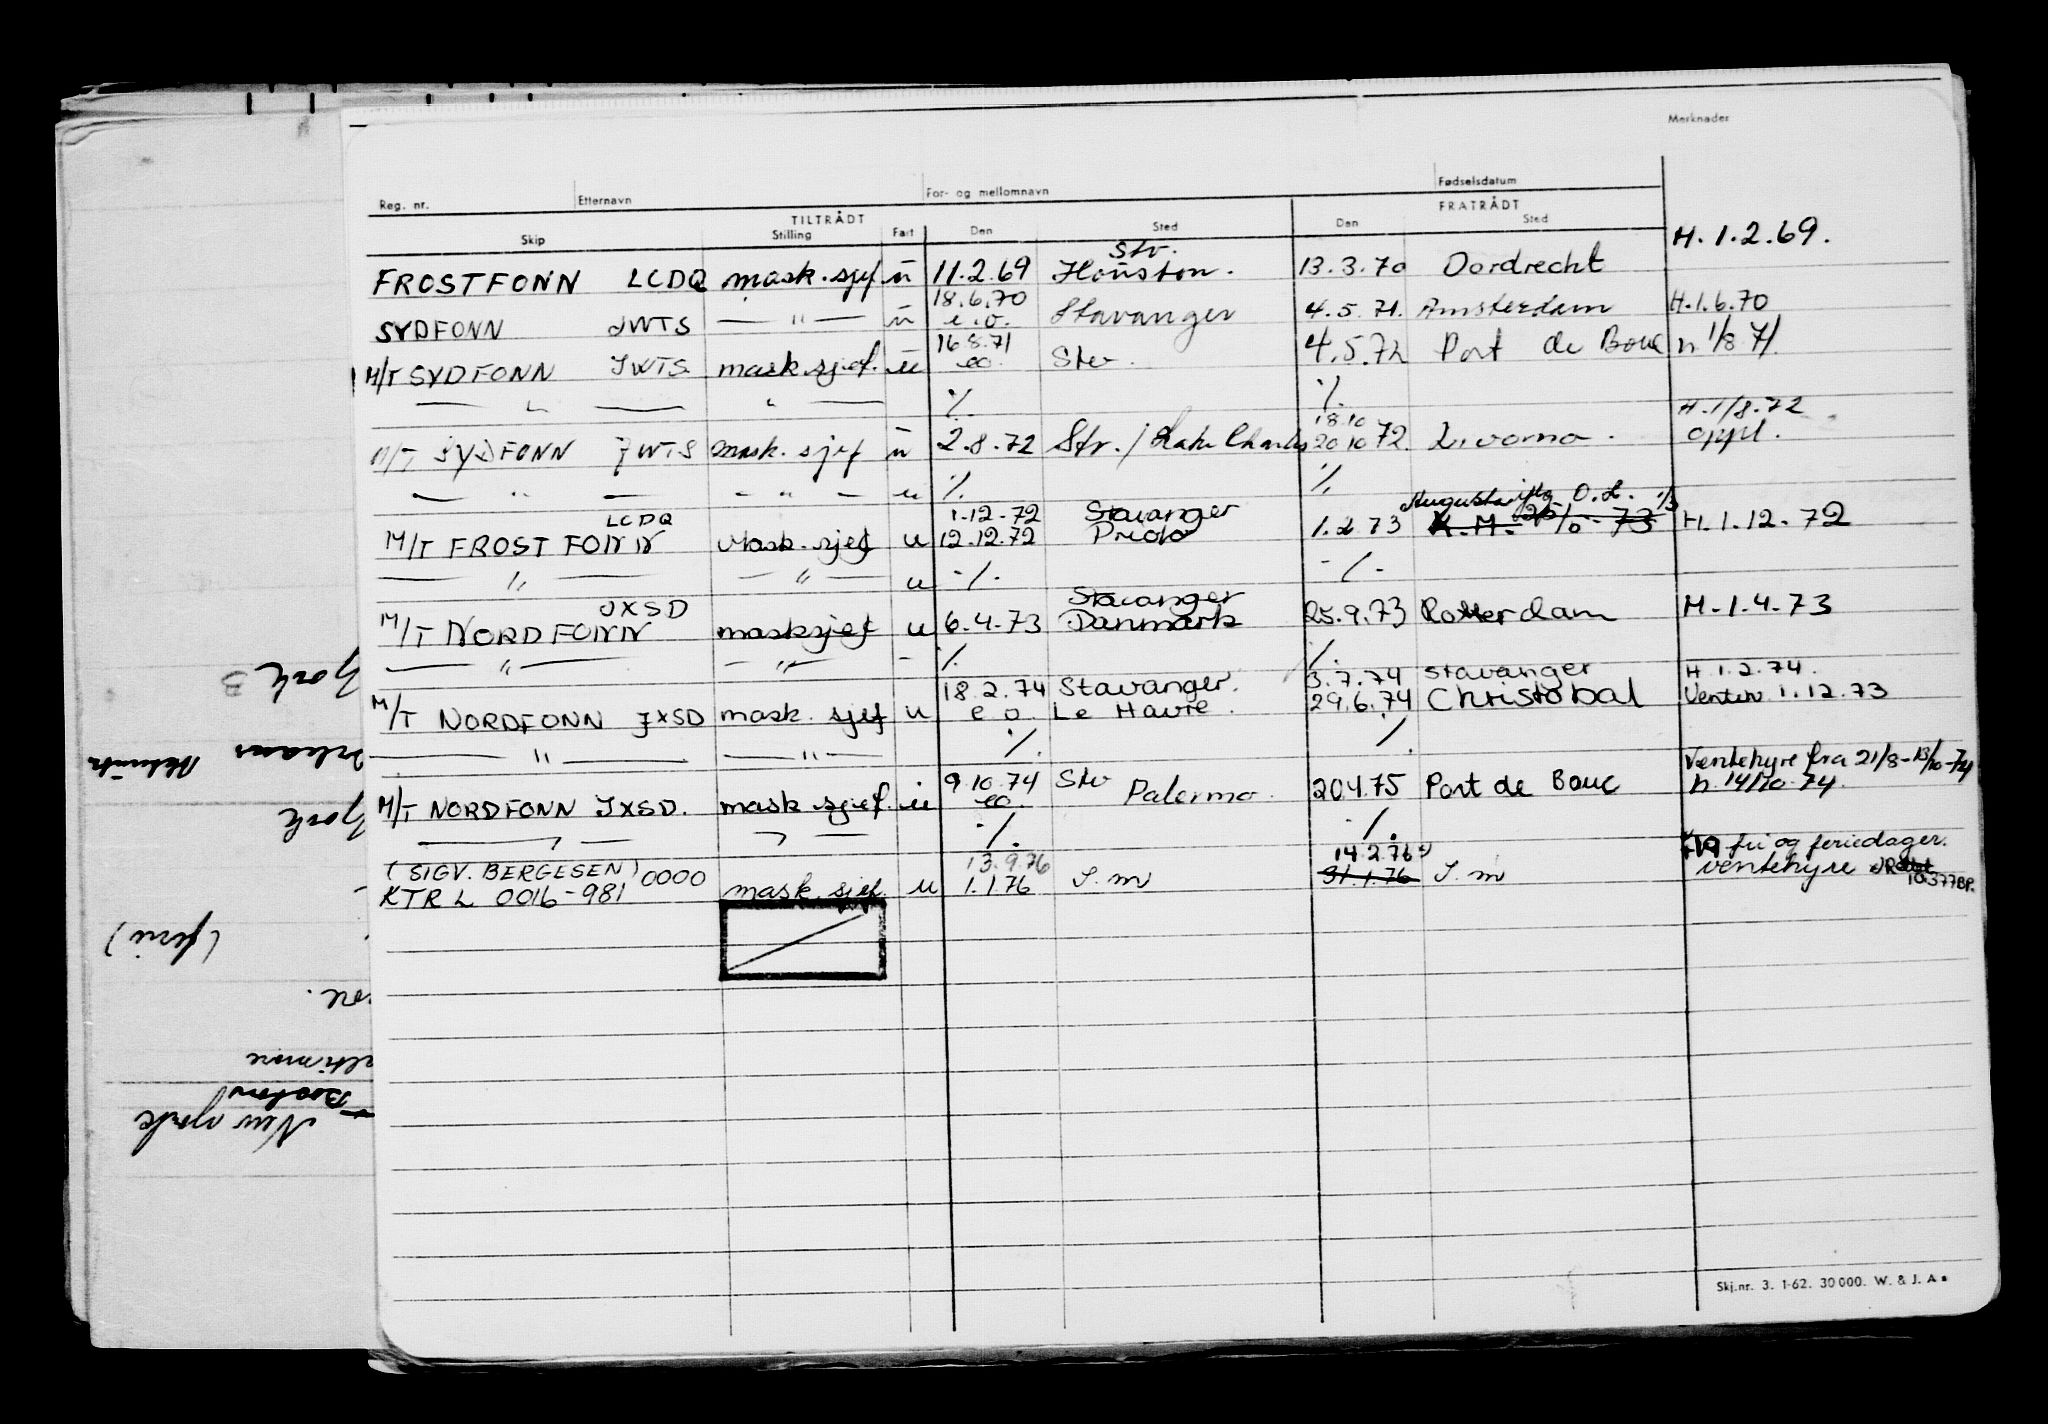 Merknader
Reg. nr. Etternavn For- og mellomnavn Fødselsdatum
TILTRÅDT FRATRÅDT
Skip Stilling Fart Den Sted Den Sted
H. 1.2.69.
Stv.
FROSTFONN LCDQ mask.sjef u 11.2.69 Houston. 13.3.70 Dordrecht
18.6.70
SYDFONN JWTS — " — u e.o. Stavanger 4.5.71. Amsterdam H.1.6.70
16.8.71
M/T SYDFONN JWTS mask.sjef. u eo. Stv. 4.5.72 Port de Bouc h 1/8 71.
— " — " — ./. ./.
18.10 H. 1/8.72
M/T SYDFONN JWTS mask. sjef u 2.8.72 Stv. / Lake Charles 20.10.72. Livorno. oppl.
— " — - " - u ./. ./.
LCDQ 1.12.72 Stavanger O.L. 1/3
M/T FROSTFONN Mask.sjef u 12.12.72 Priolo 1.2.73 K.M. H.1.12.72
— " — — " — u -/- -/-
JXSD Stavanger
M/T NORDFONN masksjef u 6.4.73 Danmark 25.9.73 Rotterdam H.1.4.73
— " — — " — - ./. ./.
18.2.74 Stavanger. 3.7.74 Stavanger H.1.2.74.
M/T NORDFONN JXSD mask. sjef u e o. Le Havre. 29.6.74 Christobal Venten 1.12.73
— " — — " — ./. ./.
Ventehyre fra 21/8-13/10-74
9.10.74 Stv
M/T NORDFONN JXSD. mask.sjef. u eo. Palermo. 20.4.75 Port de Bouc h.14/10-74.
— " — " — ./. ./.
(SIGV. BERGESEN) 0000 13.9.76 14.2.76 fri og feriedager.
KTRL 0016-981 mask.sjef. u 1.1.76 S.m 31.1.76 S.m ventehyre
Skj.nr. 3. 1-62. 30000. W. & J. A s
York B
York
(ferie)
Boston
New York